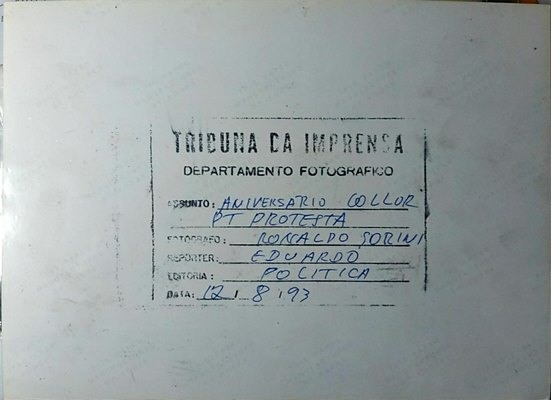 TRIBUNA DA IMPRENSA
DEPARTAMENTO FOTOGRAFICO
ASSUNTO: ANIVERSARIO COLLOR
PT PROTESTA
FOTOGRAFO: RONALDO SORINI
REPÓRTER: EDUARDO
EDITORIA: POLITICA
DATA: 12 / 8 / 93